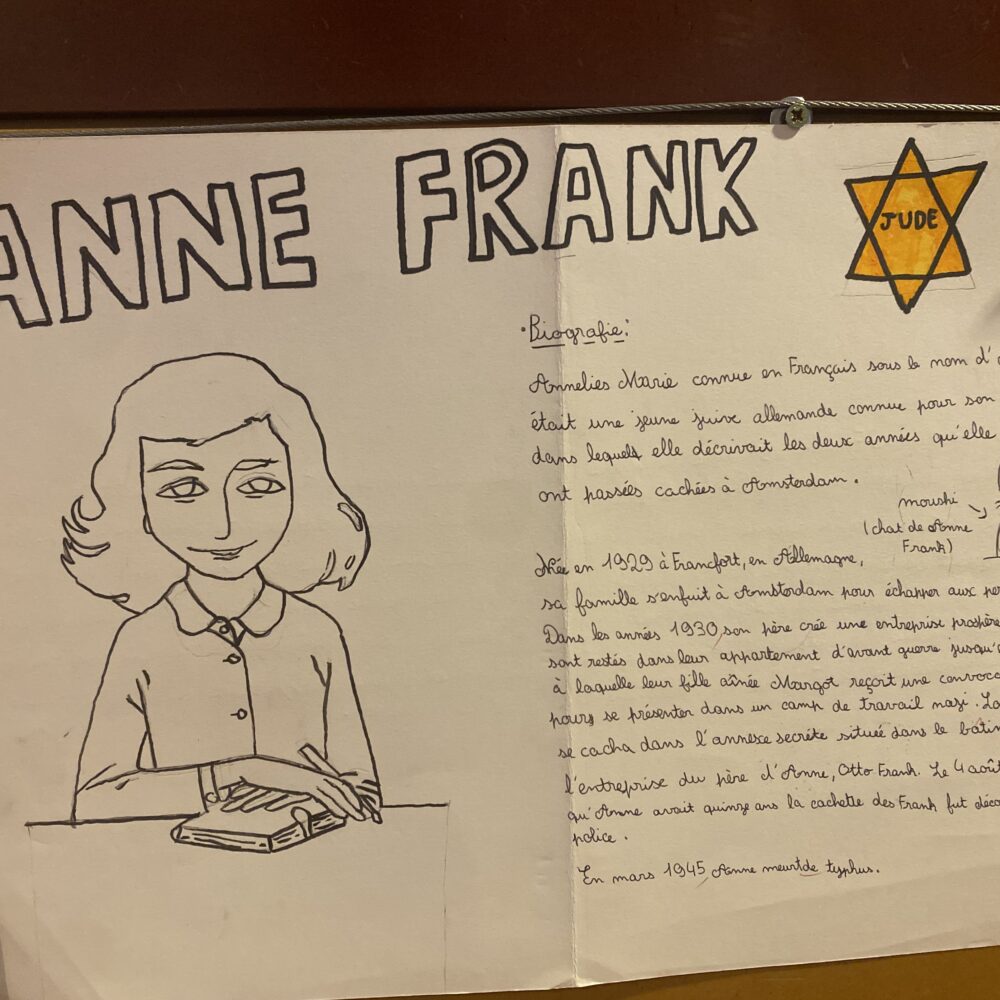 ANNE FRANK
JUDE
• Biografie:
Annelies Marie connue en Français sous le nom d'
était une jeune juive allemande connue pour son
dans lequels elle décrivait les deux années qu'elle
ont passées cachées à Amsterdam.
moushi
(chat de Anne
Frank)
Née en 1929 à Francfort, en Allemagne,
sa famille s'enfuit à Amsterdam pour échapper aux per
Dans les années 1930, son père crée une entreprise prospère
sont restés dans leur appartement d'avant guerre jusqu'
à laquelle leur fille aînée Margot reçoit une convoc
pours se présenter dans un camp de travail nazi. La
se cacha dans l'annexe secrète située dans le bâtim
l'entreprise du père d'Anne, Otto Frank. Le 4 août
qu'Anne avait quinze ans la cachette des Frank fut déco
police.
En mars 1945 Anne meurt de typhus.